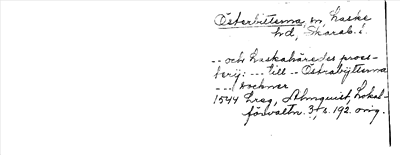 Österbitterna, sn, Laske
hd, Skarab. l.
-- och Laskahäredes proes-
terij: --- till -- Östrabÿtterna
--- sochner
1544 Lreg, Almquist, Lokal-
förvaltn. 3, s. 192. orig.